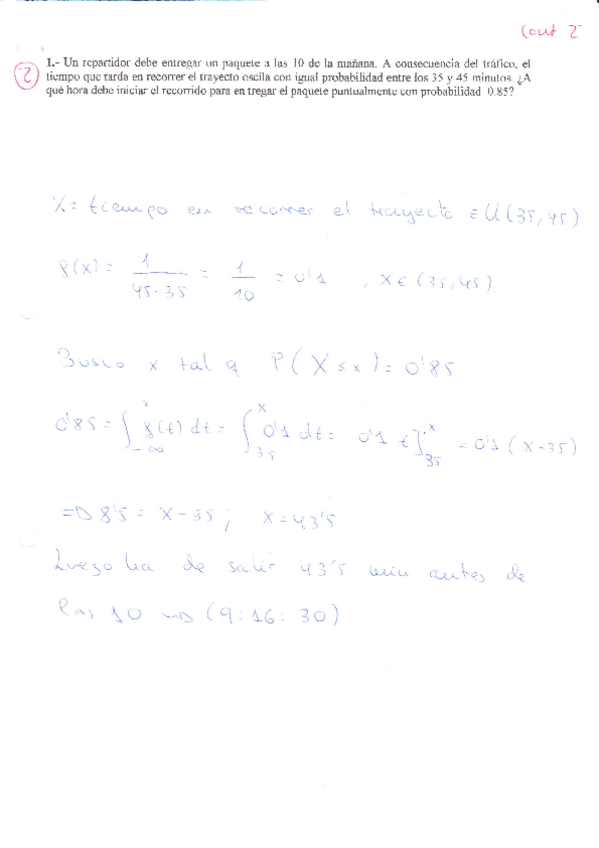 (cont 2
1.- Un repartidor debe entregar un paquete a las 10 de la mañana. A consecuencia del tráfico, el
2 tiempo que tarda en recorrer el trayecto oscila con igual probabilidad entre los 35 y 45 minutos. ¿A
qué hora debe iniciar el recorrido para en tregar el paquete puntualmente con probabilidad 0.85?
X= tiempo en recorrer el trayecto ≡ U(35,45)
f(x) = 1/(45-35) = 1/10 = 0'1 , x ∈ (35,45)
Busco x tal q P(X≤x) = 0'85
0'85 = ∫_{-∞}^{x} f(t) dt = ∫_{35}^{x} 0'1 dt = 0'1 t]_{35}^{x} = 0'1 (x-35)
=> 8'5 = x-35; x=43'5
Luego ha de salir 43'5 min antes de
las 10 => (9:16:30)